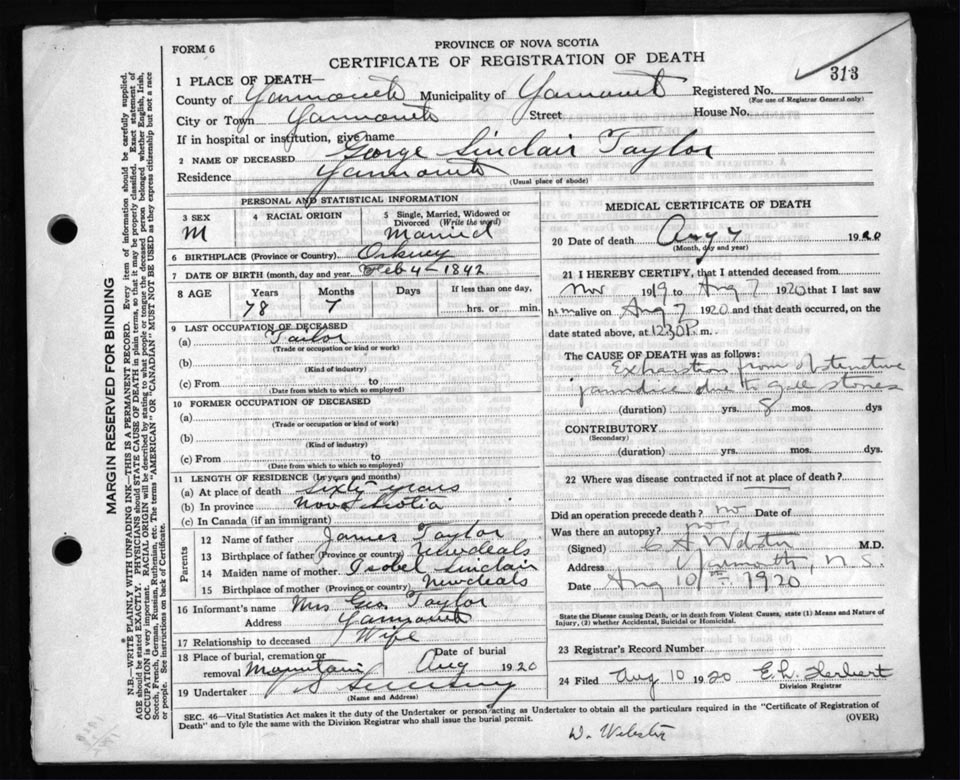 FORM 6
PROVINCE OF NOVA SCOTIA
CERTIFICATE OF REGISTRATION OF DEATH
313
1 PLACE OF DEATH—
County of Yarmouth Municipality of Yarmouth Registered No.
(For use of Registrar General only)
City or Town Yarmouth Street House No.
If in hospital or institution, give name
2 NAME OF DECEASED George Sinclair Taylor
Residence Yarmouth
(Usual place of abode)
PERSONAL AND STATISTICAL INFORMATION
3 SEX 4 RACIAL ORIGIN 5 Single, Married, Widowed or
Divorced (Write the word)
M Married
6 BIRTHPLACE (Province or Country) Orkney
7 DATE OF BIRTH (month, day and year) Feb 4 - 1842
8 AGE Years Months Days If less than one day,
78 7 hrs. or min.
9 LAST OCCUPATION OF DECEASED
(a) Tailor
(Trade or occupation or kind or work)
(b)
(Kind of industry)
(c) From to
(Date from which to which so employed)
10 FORMER OCCUPATION OF DECEASED
(a)
(Trade or occupation or kind of work)
(b)
(Kind of industry)
(c) From to
(Date from which to which so employed)
11 LENGTH OF RESIDENCE (In years and months)
(a) At place of death Sixty years
(b) In province Nova Scotia
(c) In Canada (if an immigrant)
Parents
12 Name of father James Taylor
13 Birthplace of father (Province or country) Newdeals
14 Maiden name of mother Isobel Sinclair
15 Birthplace of mother (Province or country) Newdeals
16 Informant's name Mrs Geo Taylor
Address Yarmouth
17 Relationship to deceased Wife
18 Place of burial, cremation or removal Date of burial
Mountain Aug 1920
19 Undertaker
(Name and Address)
MEDICAL CERTIFICATE OF DEATH
20 Date of death Aug 7 1920
(Month, day and year)
21 I HEREBY CERTIFY, that I attended deceased from
Nov 1919 to Aug 7 1920 that I last saw
him alive on Aug 7 1920 and that death occurred, on the
date stated above, at 12.30 P. m.
The CAUSE OF DEATH was as follows:
Exhaustion from obstructive
jaundice due to gall stones
(duration) yrs. 8 mos. dys
CONTRIBUTORY
(Secondary)
(duration) yrs. mos. dys.
22 Where was disease contracted if not at place of death?
Did an operation precede death? no Date of
Was there an autopsy? no
(Signed) C A Webster M.D.
Address Yarmouth, N.S.
Date Aug 10th 1920
State the Disease causing Death, or in death from Violent Causes, state (1) Means and Nature of
Injury, (2) whether Accidental, Suicidal or Homicidal.
23 Registrar's Record Number
24 Filed Aug 10 1920 E.L. Herbert
Division Registrar
SEC. 46—Vital Statistics Act makes it the duty of the Undertaker or person acting as Undertaker to obtain all the particulars required in the "Certificate of Registration of
Death" and to fyle the same with the Division Registrar who shall issue the burial permit.
(OVER)
W. Webster
MARGIN RESERVED FOR BINDING
N.B.—WRITE PLAINLY WITH UNFADING INK—THIS IS A PERMANENT RECORD. Every item of information should be carefully supplied.
AGE should be stated EXACTLY. PHYSICIANS should STATE CAUSE OF DEATH in plain terms, so that it may be properly classified. Exact statement of
OCCUPATION is very important. RACIAL ORIGIN will be described by stating to what people or tongue the deceased person belonged whether English, Irish,
Scotch, French, German, Russian, Ruthenian, etc. The terms "AMERICAN" OR "CANADIAN" MUST NOT BE USED as they express citizenship but not a race
or people. See instructions on back of Certificate.